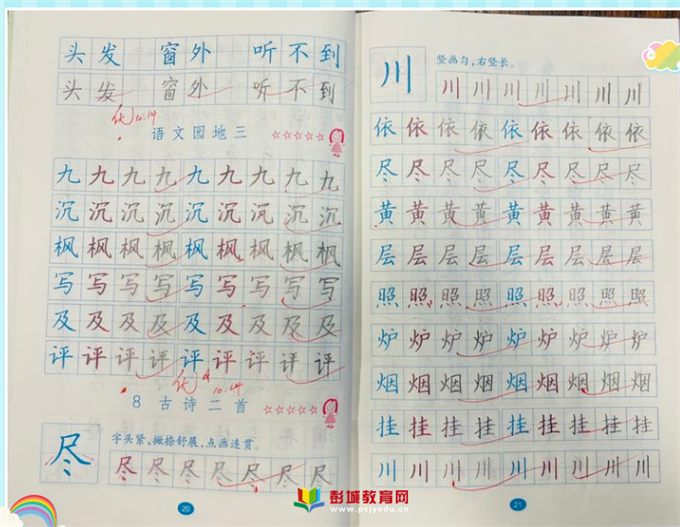 头发 窗外 听不到
头发 窗外 听不到
优 10.14
语文园地三 ☆☆☆☆☆
九九九九九九九九九
沉沉沉沉沉沉沉沉沉
枫枫枫枫枫枫枫枫枫
写写写写写写写写写
及及及及及及及及及
评评评评评评评评评
优 10.14
8 古诗二首 ☆☆☆☆☆
尽
字头紧,撇捺舒展,点画连贯。
尽尽尽尽尽尽尽
20
川
竖画匀,右竖长。
川川川川川川川
依依依依依依依依依
尽尽尽尽尽尽尽尽尽
黄黄黄黄黄黄黄黄黄
层层层层层层层层层
照照照照照照照照照
炉炉炉炉炉炉炉炉炉
烟烟烟烟烟烟烟烟烟
挂挂挂挂挂挂挂挂挂
川川川川川川川川川
21
彭城教育网
www.pcjyedu.cn